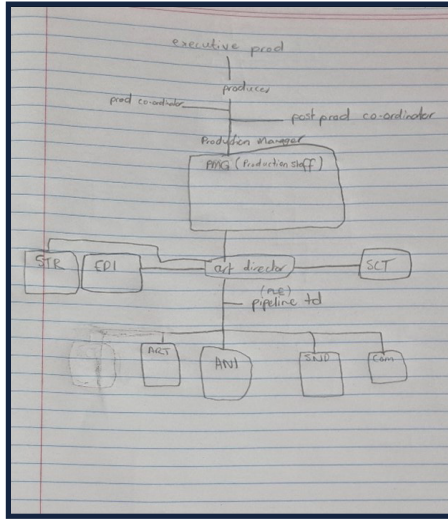 executive prod
producer
prod co-ordinator
post prod co-ordinator
Production Manager
PMG (Production staff)
STR
EDI
art director
SCT
(PLE)
pipeline td
ART
ANI
SND
Com